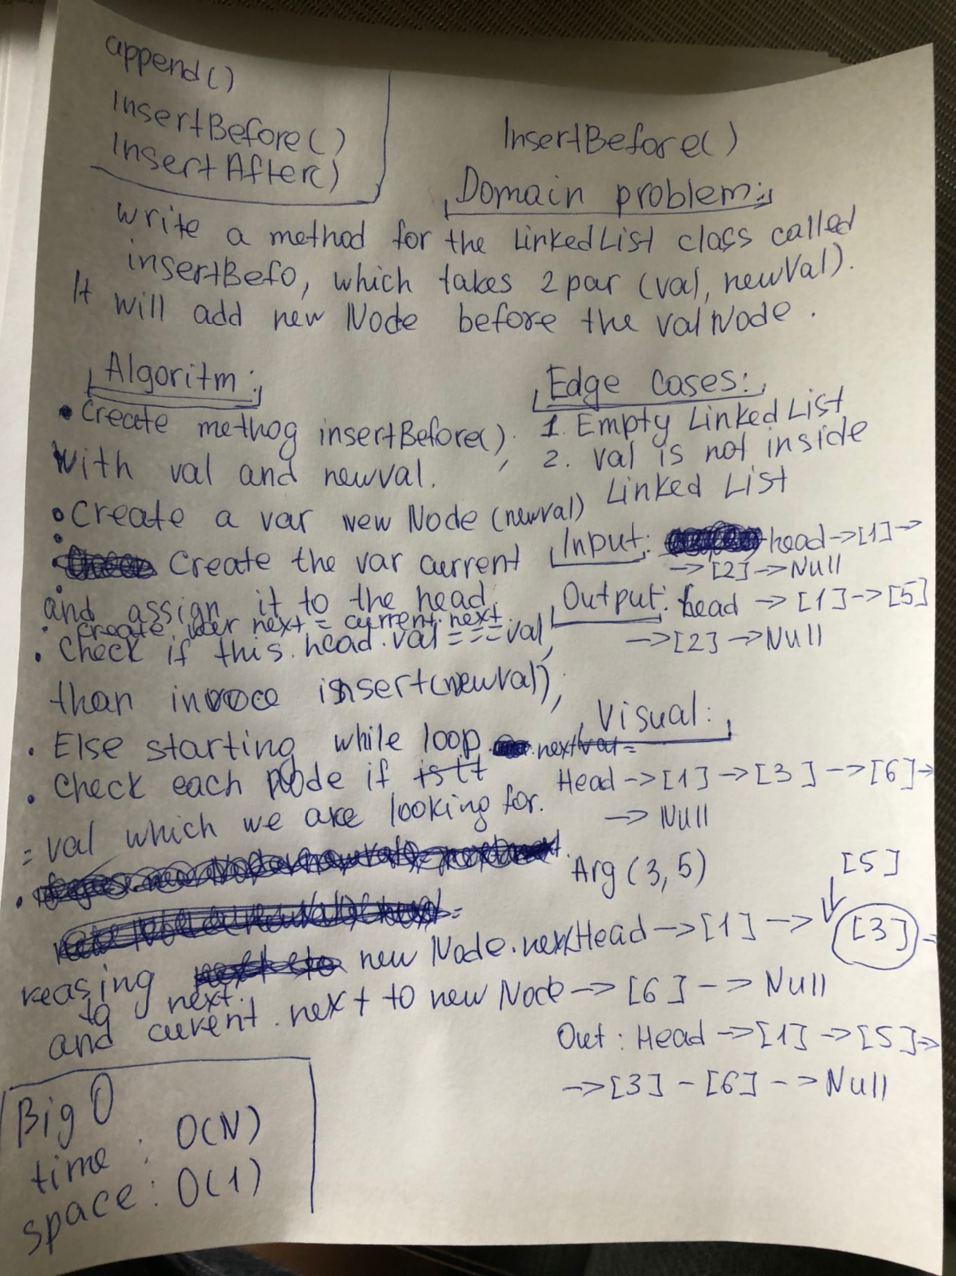 append()
InsertBefore()
InsertAfter()
InsertBefore()
Domain problem:
write a method for the LinkedList class called
insertBefo, which takes 2 par (val, newVal).
It will add new Node before the valNode.
Algoritm:
• Create methog insertBefore();
With val and newval.
• Create a var new Node (newval)
• Create the var current
and assign it to the head.
• Create var next = current.next
• Check if this.head.val === val,
than invoce insert(newval);
• Else starting while loop
• Check each Node if
= val which we are looking for.
•
reasing new Node.next
to next.
and curent.next to new Node
Big O
time: O(N)
space: O(1)
Edge Cases:
1. Empty Linked List
2. val is not inside
Linked List
Input: head->[1]->
->[2]->Null
Output: head -> [1]->[5]
->[2]->Null
Visual:
Head->[1]->[3]->[6]->
-> Null
Arg (3, 5)
[5]
Head->[1]->[3]-
-> [6] -> Null
Out: Head ->[1]->[5]->
->[3]-[6]-->Null